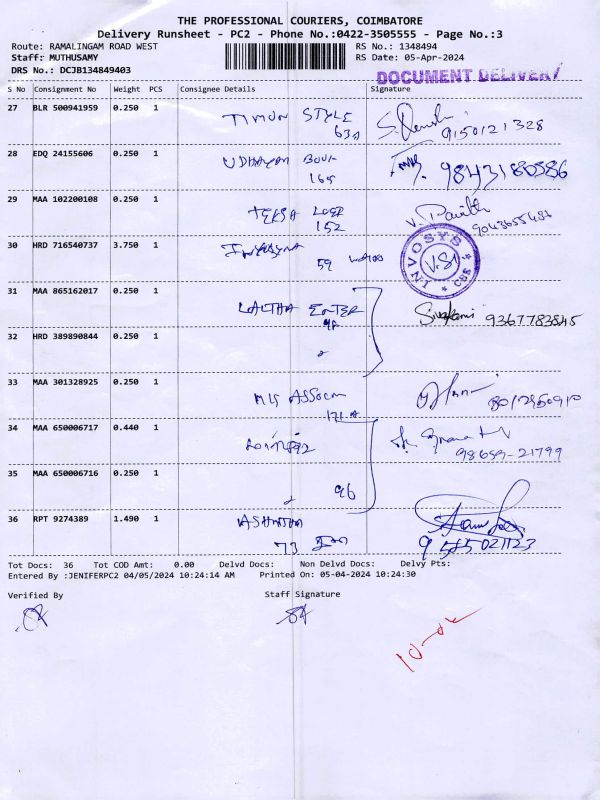 THE PROFESSIONAL COURIERS, COIMBATORE
Delivery Runsheet - PC2 - Phone No.:0422-3505555 - Page No.:3
Route: RAMALINGAM ROAD WEST RS No.: 1348494
Staff: MUTHUSAMY RS Date: 05-Apr-2024
DRS No.: DCJB134849403 DOCUMENT DELIVERY
S No Consignment No Weight PCS Consignee Details Signature
27 BLR 500941959 0.250 1 TIMON STYLE
63A 9150121328
28 EDQ 24155606 0.250 1
165 9843180586
29 MAA 102200108 0.250 1
152 9043655484
30 HRD 716540737 3.750 1
59 INVOSYS CBE
31 MAA 865162017 0.250 1 LALTHA ENTER
9367783845
32 HRD 389890844 0.250 1
33 MAA 301328925 0.250 1 M/S ASSOCN
171.A
34 MAA 650006717 0.440 1
98659-21799
35 MAA 650006716 0.250 1
96
36 RPT 9274389 1.490 1
73
Tot Docs: 36 Tot COD Amt: 0.00 Delvd Docs: Non Delvd Docs: Delvy Pts:
Entered By :JENIFERPC2 04/05/2024 10:24:14 AM Printed On: 05-04-2024 10:24:30
Verified By Staff Signature